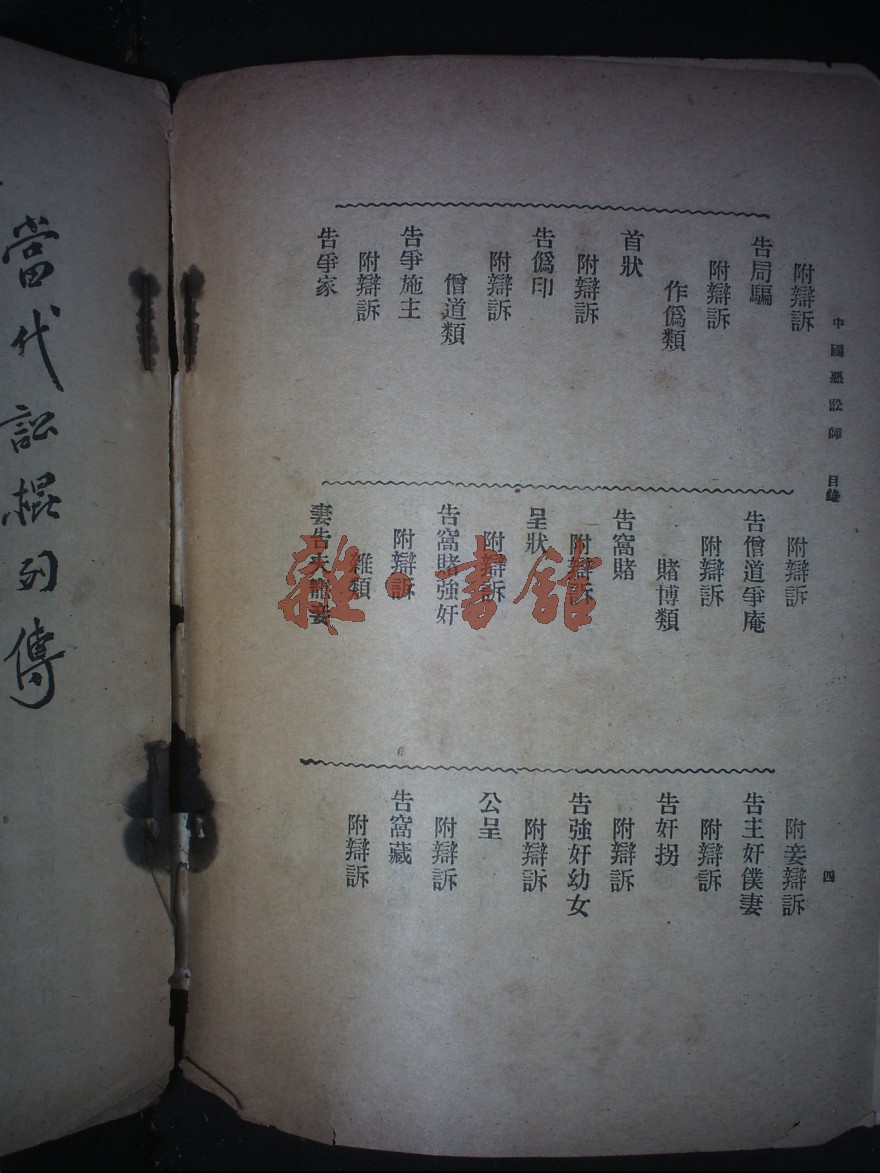 中國惡訟師 目錄
四
附辯訴
告局騙
附辯訴
作僞類
首狀
附辯訴
告僞印
附辯訴
僧道類
告爭施主
附辯訴
告爭家
附辯訴
告僧道爭庵
附辯訴
賭博類
告窩賭
附辯訴
呈狀
附辯訴
告窩賭強奸
附辯訴
雜類
妻告夫妾
附妾辯訴
告主奸僕妻
附辯訴
告奸拐
附辯訴
告強奸幼女
附辯訴
公呈
附辯訴
告窩藏
附辯訴
當代訟棍列傳
雜·書館